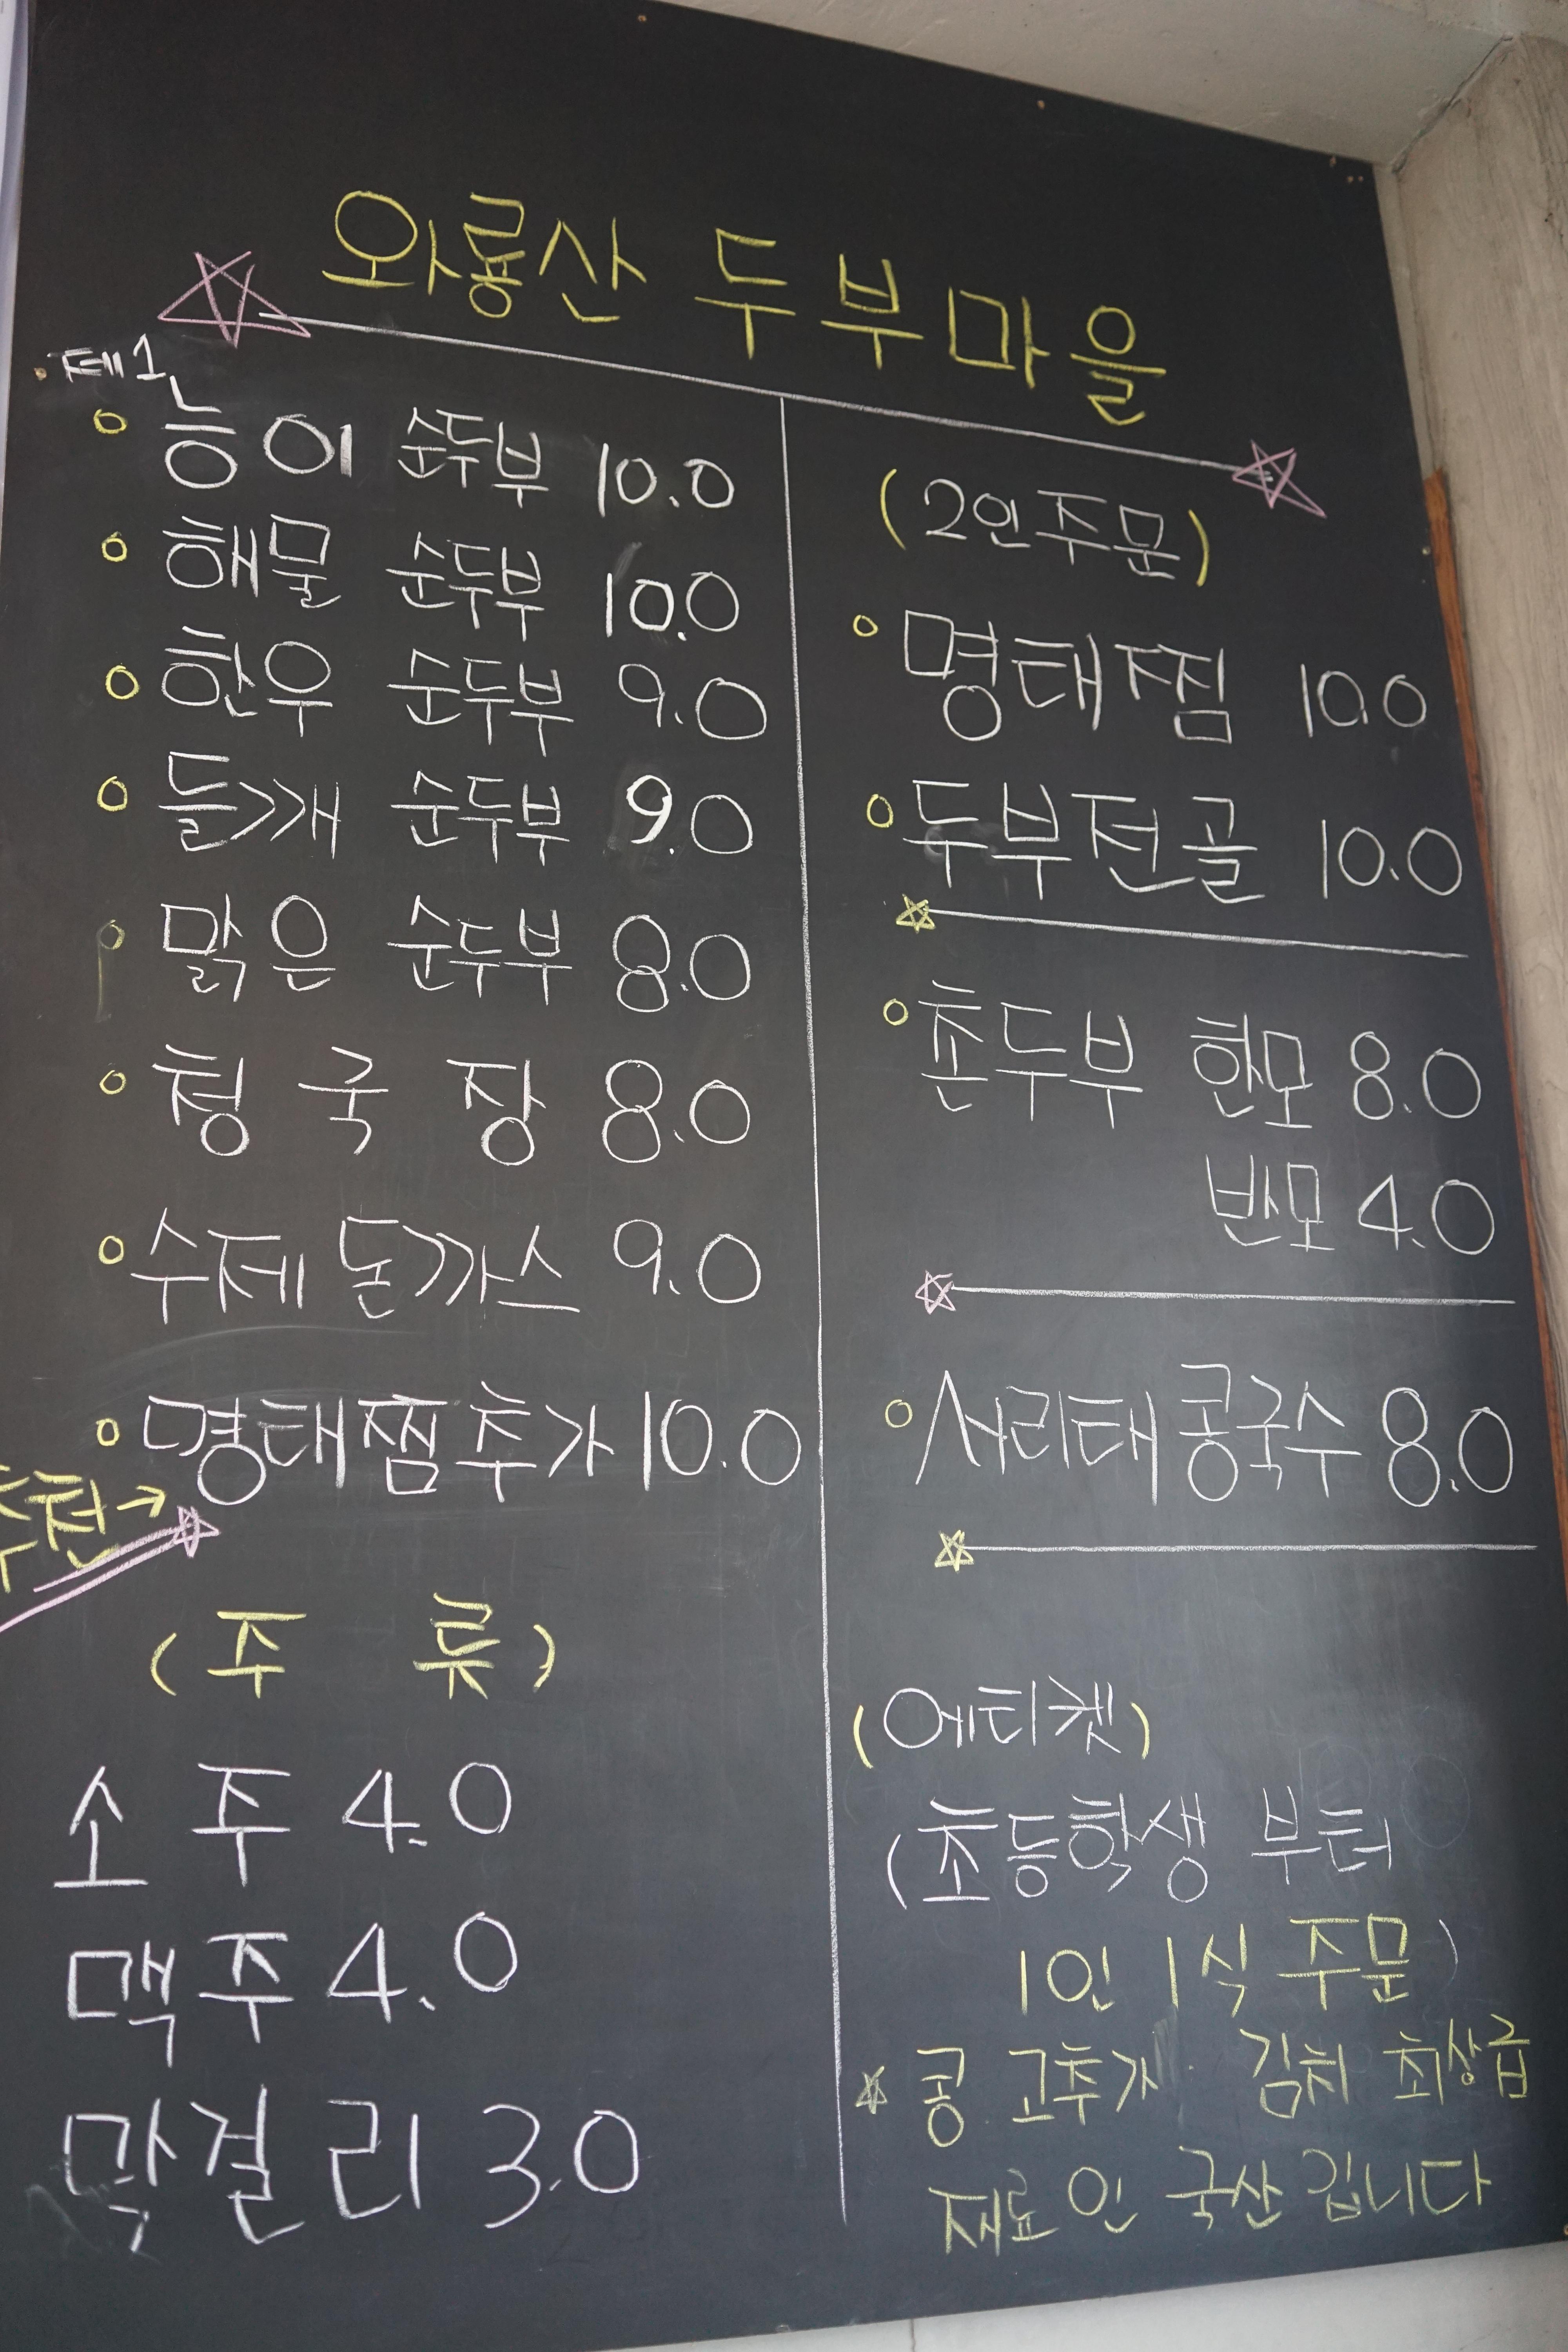 와룡산 두부마을
제1
능이 순두부 10.0
해물 순두부 10.0
한우 순두부 9.0
들깨 순두부 9.0
맑은 순두부 8.0
청국장 8.0
수제 돈까스 9.0
명태찜추가 10.0
추천→
(주류)
소주 4.0
맥주 4.0
막걸리 3.0
(2인주문)
명태찜 10.0
두부전골 10.0
촌두부 한모 8.0
반모 4.0
서리태콩국수 8.0
(에티켓)
(초등학생 부터
1인 1식 주문)
콩 고추가 김치 최상급
재료인 국산입니다